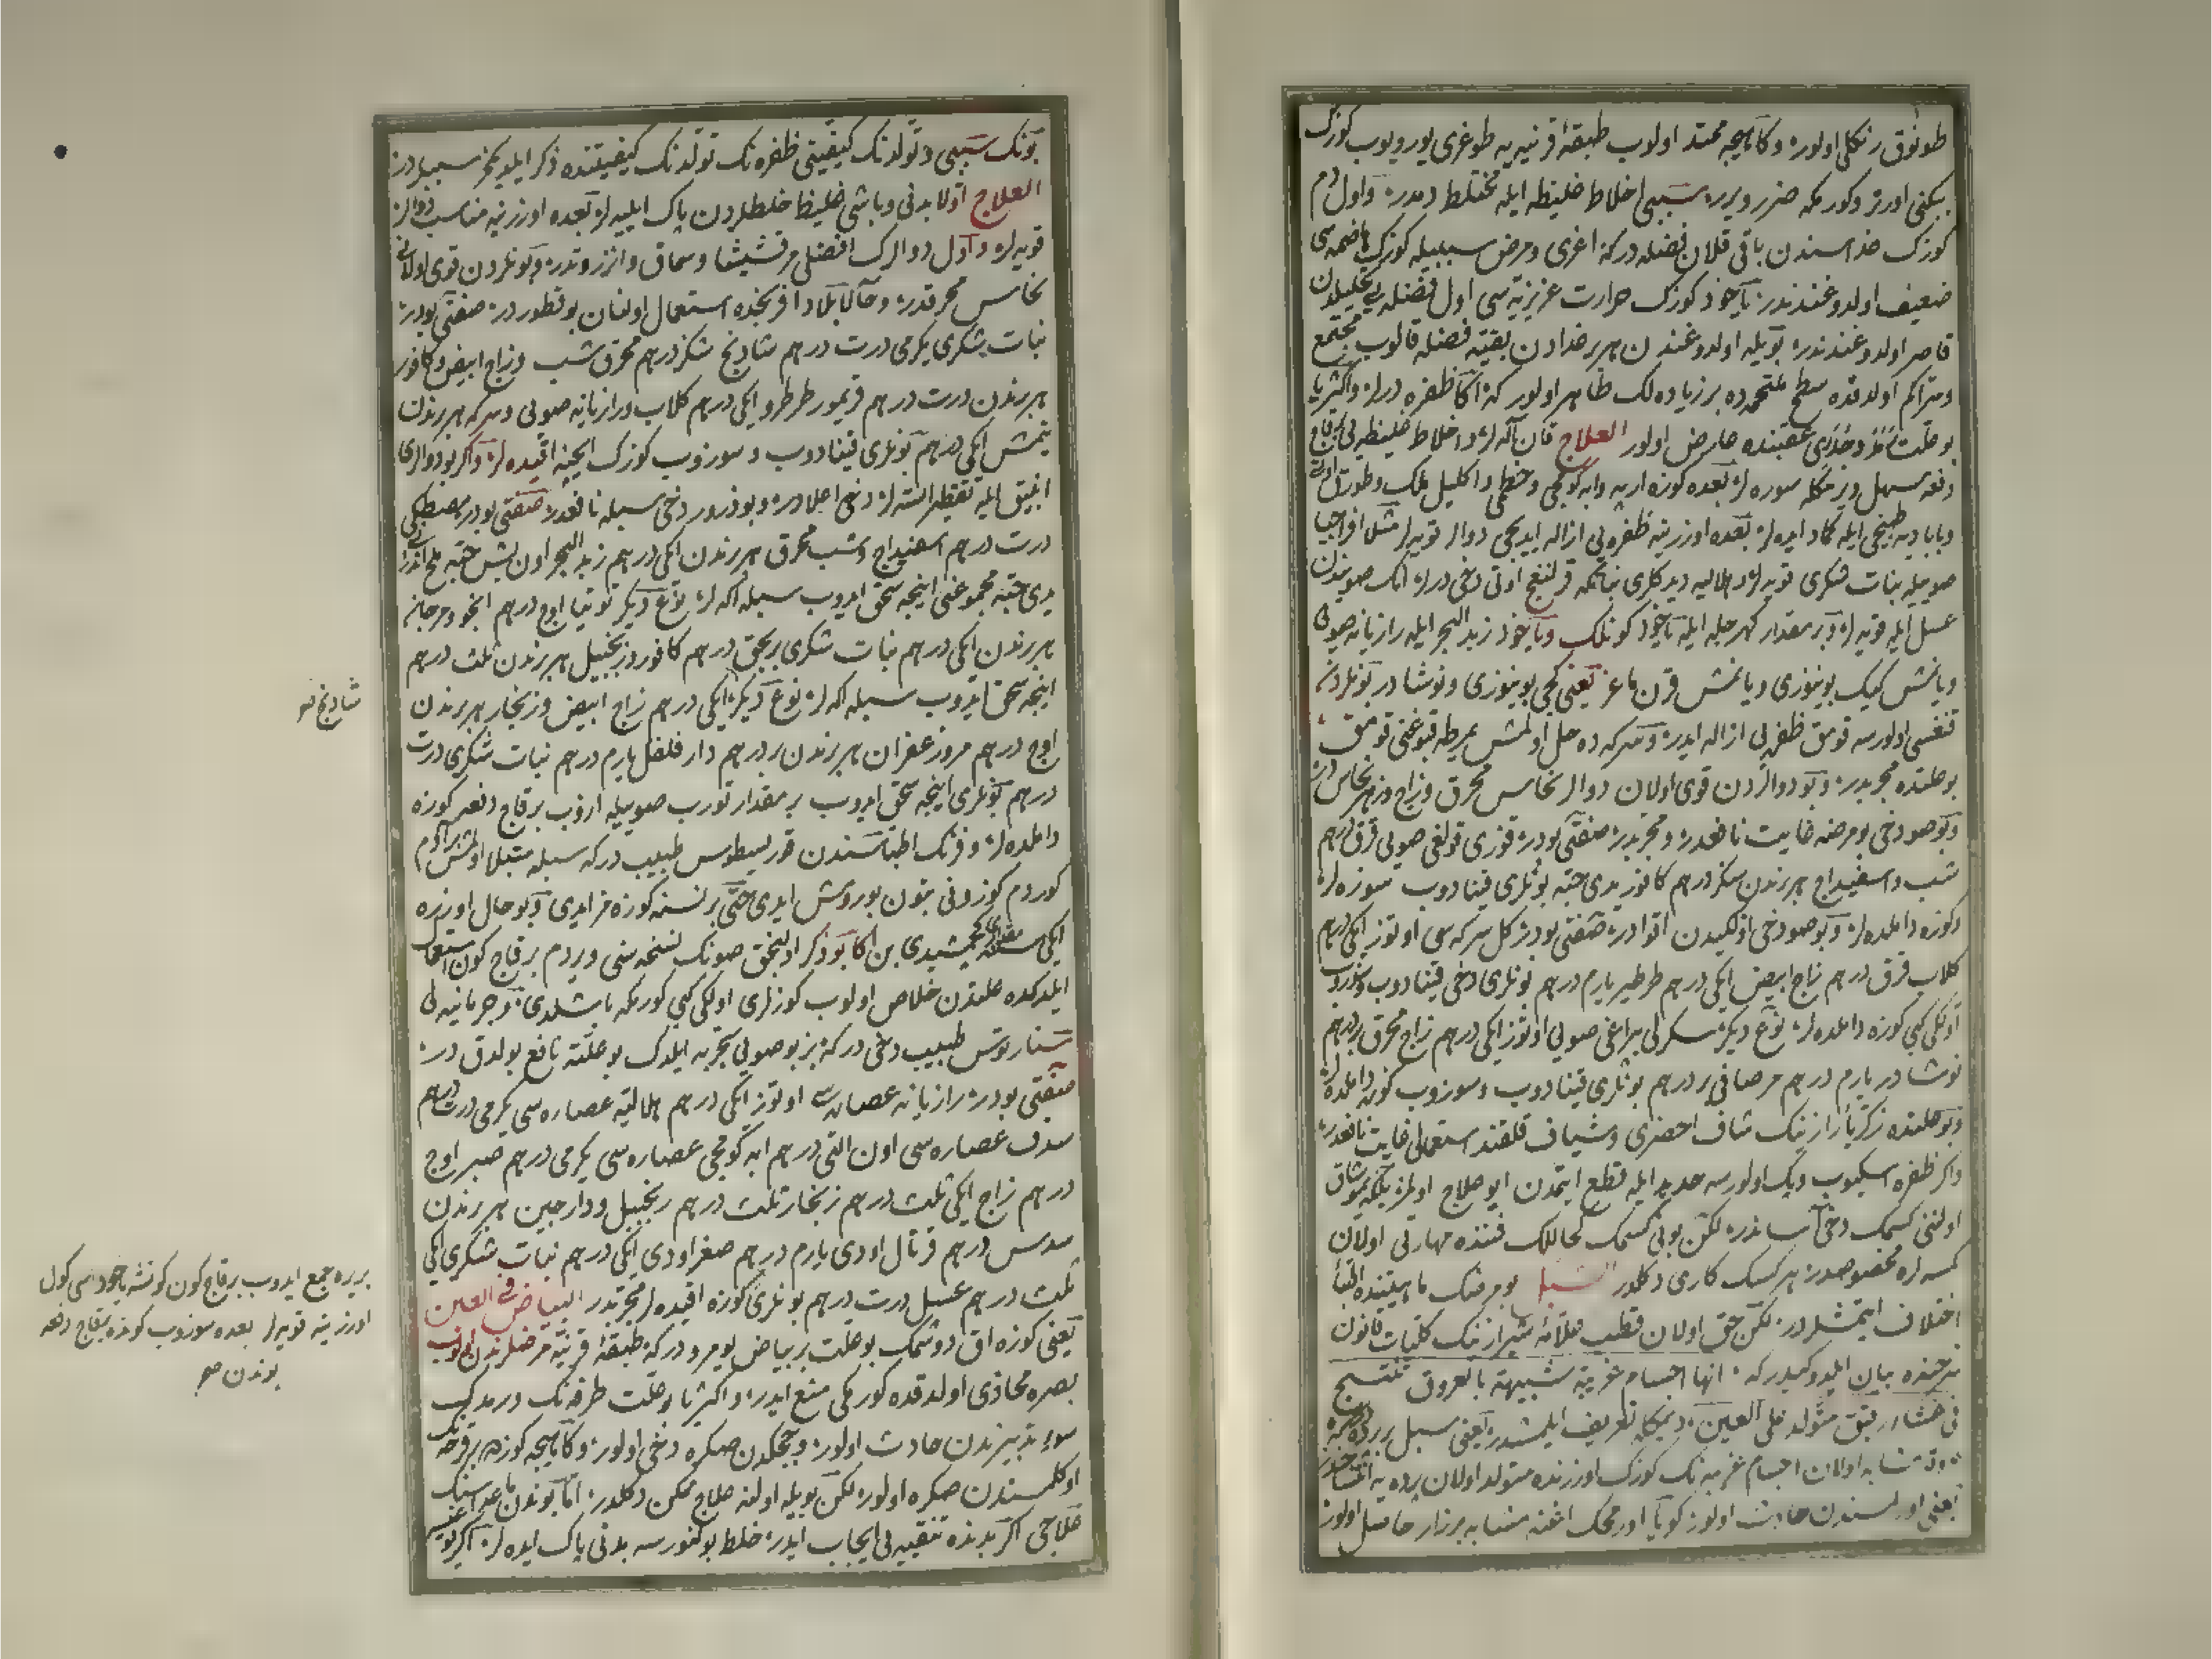 طونوق رنكلی اولور و كاهیجه ممتد اولوب طبقهٔ قرنیه یه طوغری یورویوب كوزك
ببكنی اورتر و كورمكه ضرر ویرر سببی اخلاط غلیظه ایله مختلط دمدر و اول دم
كوزك غذاسندن باقی قلان فضله در كه اغری و مرض سببیله كوزك هاضمه سی
ضعیف اولدوغندندر یاخود كوزك حرارت عزیزیه سی اول فضله یی تحلیلدن
قاصر اولدوغندندر بویله اولدوغندن هر بر غدادن بقیه فضله قالوب مجتمع
و متراكم اولدقده سطح ملتحمه ده بر زیاده لك ظاهر اولور كه اكا ظفره درلر و اكثریا
بو علت عقبنده عارض اولور العلاج قان آله لر و اخلاط غلیظه یی بر قاج
دفعه مسهل ویرمكله سوره لر بعده كوزه ارپه و ابه كومجی و خطمی و اكلیل ملك و طورق اوتی
و بابادیه طبیخی ایله كماد ایده لر بعده اوزرینه ظفره یی ازاله ایدیجی دوالر قویه لر مثلا
صوییله نبات شكری قویه لر و هلالیه دیدكلری نباتكه قرلنغج اوتی دخی درلر انك صویندن
عسل ایله قویه لر و بر مقدار كهرجله ایله یاخود كونلك و یاخود زبد البحر ایله رازیانه صویی
و یانمش كییك بوینوزی و یانمش قرن ماعز یعنی كچی بوینوزی و نوشادر بونلردن
قنغسی اولورسه قومق ظفره یی ازاله ایدر و سركه ده حل اولمش یمرطه قبوغنی قومق
بو علتده مجربدر و بو دوالردن قوی اولان دوالر نحاس محرق و زاج و زهر نحاس در
و بو صو دخی بو مرضه غایت نافعدر و مجربدر صفتی بودر قوزی قولغی صویی قرق درهم
شب و اسفیداج هر برندن سكز درهم كافور یدی حبه بونلری قینادوب سوزه لر
و كوزه داملده لر و بو صو دخی اولكیدن اقوادر صفتی بودر كل سركه سی اوتوز ایكی درهم
كلاب قرق درهم زاج ابیض ایكی درهم طرطیر یارم درهم بونلری دخی قینادوب سوزوب
اولكی كبی كوزه داملده لر نوع دیكر سكرلی یپراغی صویی اوتوز ایكی درهم زاج محرق بر درهم
نوشادر یارم درهم مر صافی بر درهم بونلری قینادوب و سوزوب كوزه داملده لر
و بو علتده زكریا رازینك شاف احضری و شیاف قلقند استعمالی غایت نافعدر
و اكر ظفره اسكیوب و پك اولورسه حدید ایله قطع ایتمدن ایو علاج اولمز بلكه یومشاق
اولنی كسمك دخی آساندر لكن بونی كسمك كحاللك فننده مهارتی اولان
كمسه لره مخصوصدر هر كسك كاری دكلدر السبل بو مرضك ماهیتنده اطبا
اختلاف ایتمشلردر لكن حق اولان قطب علامهٔ شیرازینك كلیات قانون
شرحنده بیان ایلدوكیدر كه انها اجسام غریبة شبیهة بالعروق تنتسج
فی غشاء رقیق متولد علی العین دیمكله تعریف ایلمشدر یعنی سبل بر پرده در كه
عروقه مشابه اولان اجسام غریبه نك كوزك اوزرنده متولد اولان پرده یه
یعنی اورلسندن حادث اولور كویا اورمجك اغنه مشابه بر زار حاصل اولور
بونك سببی و تولدنك كیفیتی ظفره نك تولدنك كیفیتنده ذكر ایلدیكمز سببلردر
العلاج اولا بدنی و باشی غلیظ خلطلردن پاك ایلیه لر بعده اوزرینه مناسب دوالر
قویه لر و اول دوالرك افضلی مرقشیشا و سماق و انزروتدر و بونلردن قوی اولانی
نحاس محرقدر و حالا بلاد افرنجده استعمال اولنان بو قطوردر صفتی بودر
نبات شكری یكرمی درت درهم شادنج سكز درهم محرق شب و زاج ابیض و كافور
هر برندن درت درهم قریمور طرطرو ایكی درهم كلاب و رازیانه صویی و سركه هر برندن
یتمش ایكی درهم بونلری قینادوب و سوزوب كوزك ایچنه اقیده لر و اكر بو دوالری
انبیق ایله تقطیر ایتسه لر دخی اعلادر و بو ذرور دخی سبله نافعدر صفتی بودر مصطكی
درت درهم اسفیداج و شب محرق هر برندن ایكی درهم زبد البحر اون بش حبه ملح
یدی حبه مجموعنی اینجه سحق ایدوب سبله اكه لر نوع دیكر توتیا اوچ درهم انجو و مرجان
هر برندن ایكی درهم نبات شكری بر بچق درهم كافور و زنجبیل هر برندن ثلث درهم
اینجه سحق ایدوب سبله اكه لر نوع دیكر ایكی درهم زاج ابیض و زنجار هر برندن
اوچ درهم مر و زعفران هر برندن بر درهم دار فلفل یارم درهم نبات شكری درت
درهم بونلری اینجه سحق ایدوب بر مقدار تورب صوییله ازوب بر قاج دفعه كوزه
داملده لر و فرنك اطباسندن قورلیطوس طبیب دركه سبله مبتلا اولمش بر آدم
كوردم كوزونی بتون بورومش ایدی حتی بر نسنه كورمز ایدی و بو حال اوزره
ایكی سنه كچمشیدی بن اكا بو ذكر اولنجق صونك نسخه سنی ویردم بر قاج كون استعمال
ایلدكده علتدن خلاص اولوب كوزلری اولكی كبی كورمكه باشلدی و جرمانیه لی
سنارتوس طبیب دخی در كه بز بو صویی تجربه ایلدك بو علته نافع بولدق در
صفتی بودر رازیانه عصاره سی اوتوز ایكی درهم هلالیه عصاره سی یكرمی درت درهم
سدف عصاره سی اون التی درهم ابه كومجی عصاره سی یكرمی درهم صبر اوچ
درهم زاج ایكی ثلث درهم زنجار ثلث درهم زنجبیل و دارچین هر برندن
سدس درهم قرتال اودی یارم درهم صغر اودی ایكی درهم نبات شكری ایكی
ثلث درهم عسل درت درهم بونلری كوزه اقیده لر مجربدر البیاض فی العین
یعنی كوزه اق دوشمك بو علت بر بیاض یومرودر كه طبقهٔ قرنیه مرضلرندن اولوب
بصره محاذی اولدقده كورمكی منع ایدر و اكثریا بو علت طرفه نك و رمدك
سوء تدبیرندن حادث اولور و چچكدن صكره دخی اولور و كاهیجه كوزده بر قرحه نك
اوكلمسندن صكره اولور لكن بویله اولنه علاج ممكن دكلدر اما بوندن ماعداسنك
علاجی اكر بدنده تنقیه یی ایجاب ایدر خلط بولنورسه بدنی پاك ایده لر اكر
شادنج صو
بر یره جمع ایدوب بر قاج كون كونشه یاخود اسی كول
اوزرینه قویه لر بعده سوزوب كوزه بر قاج دفعه
بوندن صو